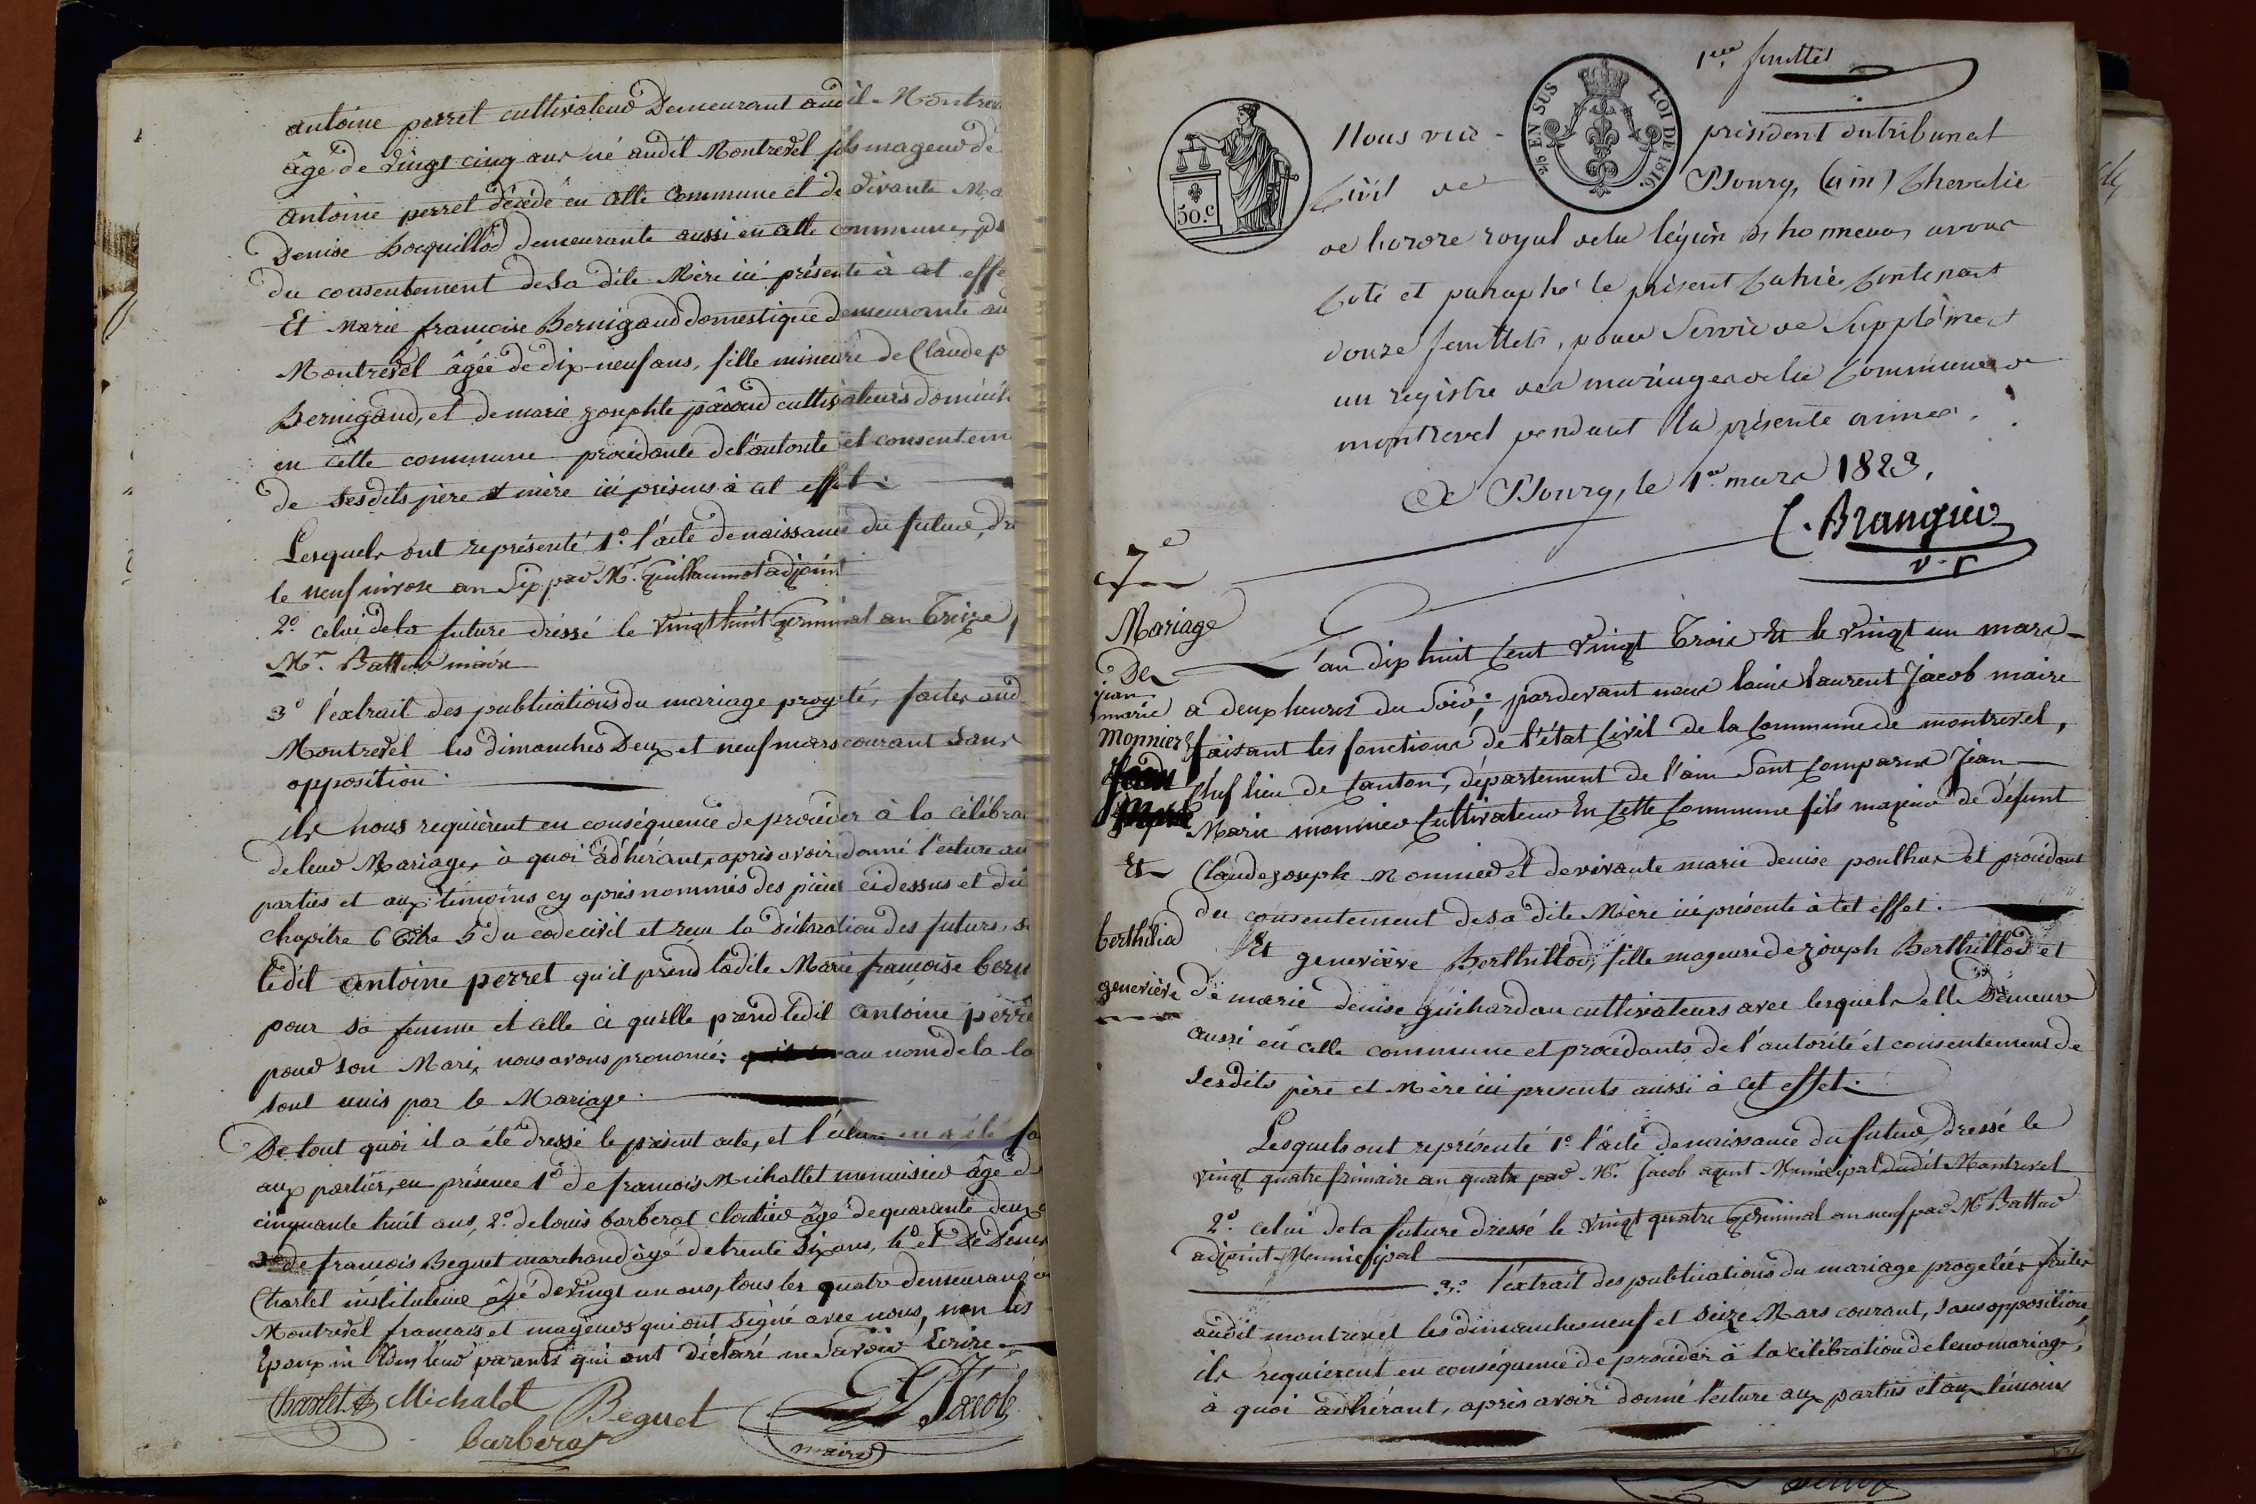 antoine perret cultivateur Demeurant audit Montrev
âgé de vingt cinq ans né audit Montrevel fils majeur de
antoine perret décédé en cette Commune et de vivante Ma
Denise Bocquillod demeurante aussi en cette commune,
du consentement de sa dite Mère ici présente à cet effe
Et Marie françoise Bernigaud domestique demeurante au
Montrevel âgée de dix-neuf ans, fille mineure de Claude p
Bernigaud, et de marie josephte cultivateurs domicili
en cette commune procédante de l'autorité et consentem
de sesdits père et mère ici présens à cet effet :
Lesquels ont représenté 1º. l'acte de naissance du futur, dr
le neuf nivose an Six par Mr. Guillaumot adjoint
2º. celui de la future dressé le vingt huit Germinal an Treize
Mr. Battur maire
3º l'extrait des publications du mariage progeté, faites aud
Montrevel les dimanches Deux et neuf mars courant Sans
opposition.
ils nous requièrent en conséquence de procéder à la célébra
de leur Mariage, à quoi adhérant, après avoir donné lecture au
parties et aux témoins cy après nommés des pièces cidessus et du
chapitre 6 titre 5 du code civil et reçu la déclaration des futurs,
ledit antoine perret qu'il prend ladite Marie françoise bern
pour sa femme et celle ci quelle prend ledit antoine perre
pour son Mari, nous avons prononcé: au nom de la lo
sont unis par le Mariage.
De tout quoi il a été dressé le présent acte, et lecture en a été fa
aux parties, en présence 1º de françois Michallet menuisier âgé de
cinquante huit ans, 2º. de louis barberat cloutier âgé de quarante deux
3º de françois Beguet marchand âgé de trente Six ans, 4º et De Denis
Charlet instituteur âgé de vingt un ans, tous les quatre demeurans
Montrevel français et majeurs qui ont signé avec nous, non les
Epoux ni leur parents qui ont déclaré ne Savoir Ecrire
Charlet D Michalet Beguet Jacob
barberat maire
1ere. feuillet
50.C
2/5 EN SUS LOI DE 1816.
Nous vice - président du tribunal
Civil de Bourg, (ain) Chevalier
de l'ordre royal de la légion d'honneur, avons
coté et paraphé le présent Cahier Contenant
douze feuillets, pour Servir de Supplément
au registre des mariages de la Commune de
montrevel pendant la présente année.
A Bourg, le 1er mars 1823.
C. Brangier
v. p
7e
Mariage
De
jean
marie
Monnier
Et
berthilod
geneviève
L'an dix huit Cent vingt Trois Et le vingt un mars
a deux heures du Soir; pardevant nous louis laurent Jacob maire
faisant les fonctions de l'état Civil de la Commune de montrevel,
Chef lieu de Canton, département de l'ain Sont Comparus Jean
Marie monnier Cultivateur En Cette Commune fils majeur de défunt
Claude joseph Monnier et de vivante marie denise ponthus et procédant
du consentement de sa dite Mère ici présente à cet effet.
Et geneviève Berthillod, fille majeure de joseph Berthillod et
de marie denise guichardon cultivateurs avec lesquels elle Demeure
aussi en cette commune et procédants de l'autorité et consentement de
sesdits père et Mère ici presents aussi à cet effet.
Lesquels ont représenté 1º l'acte de naissance du futur, dressé le
vingt quatre frimaire an quatre par Mr. Jacob agent Municipal dudit Montrevel
2º. celui de la future dressé le vingt quatre Germinal an neuf par Mr Battur
adjoint Municipal
3º. l'extrait des publications du mariage progeté, faites
audit montrevel les dimanches neuf et seize Mars courant, sans opposition,
ils requièrent en conséquence de procéder à la célébration de leur mariage,
à quoi adhérant, après avoir donné lecture aux parties et aux témoins